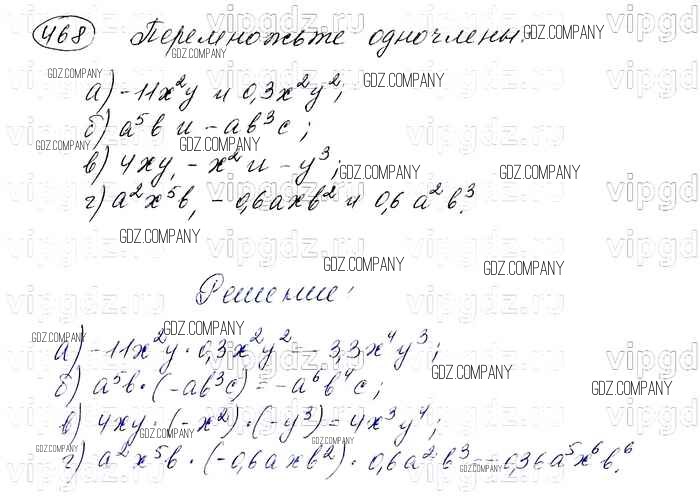 468 Перемножьте одночлены:
а) -11x²y и 0,3x²y²;
б) a⁵b и -ab³c;
в) 4xy, -x² и -y³;
г) a²x⁵b, -0,6axb² и 0,6a²b³.
Решение:
а) -11x²y · 0,3x²y² = -3,3x⁴y³;
б) a⁵b · (-ab³c) = -a⁶b⁴c;
в) 4xy · (-x²) · (-y³) = 4x³y⁴;
г) a²x⁵b · (-0,6axb²) · 0,6a²b³ = -0,36a⁵x⁶b⁶.
GDZ.COMPANY
vipgdz.ru